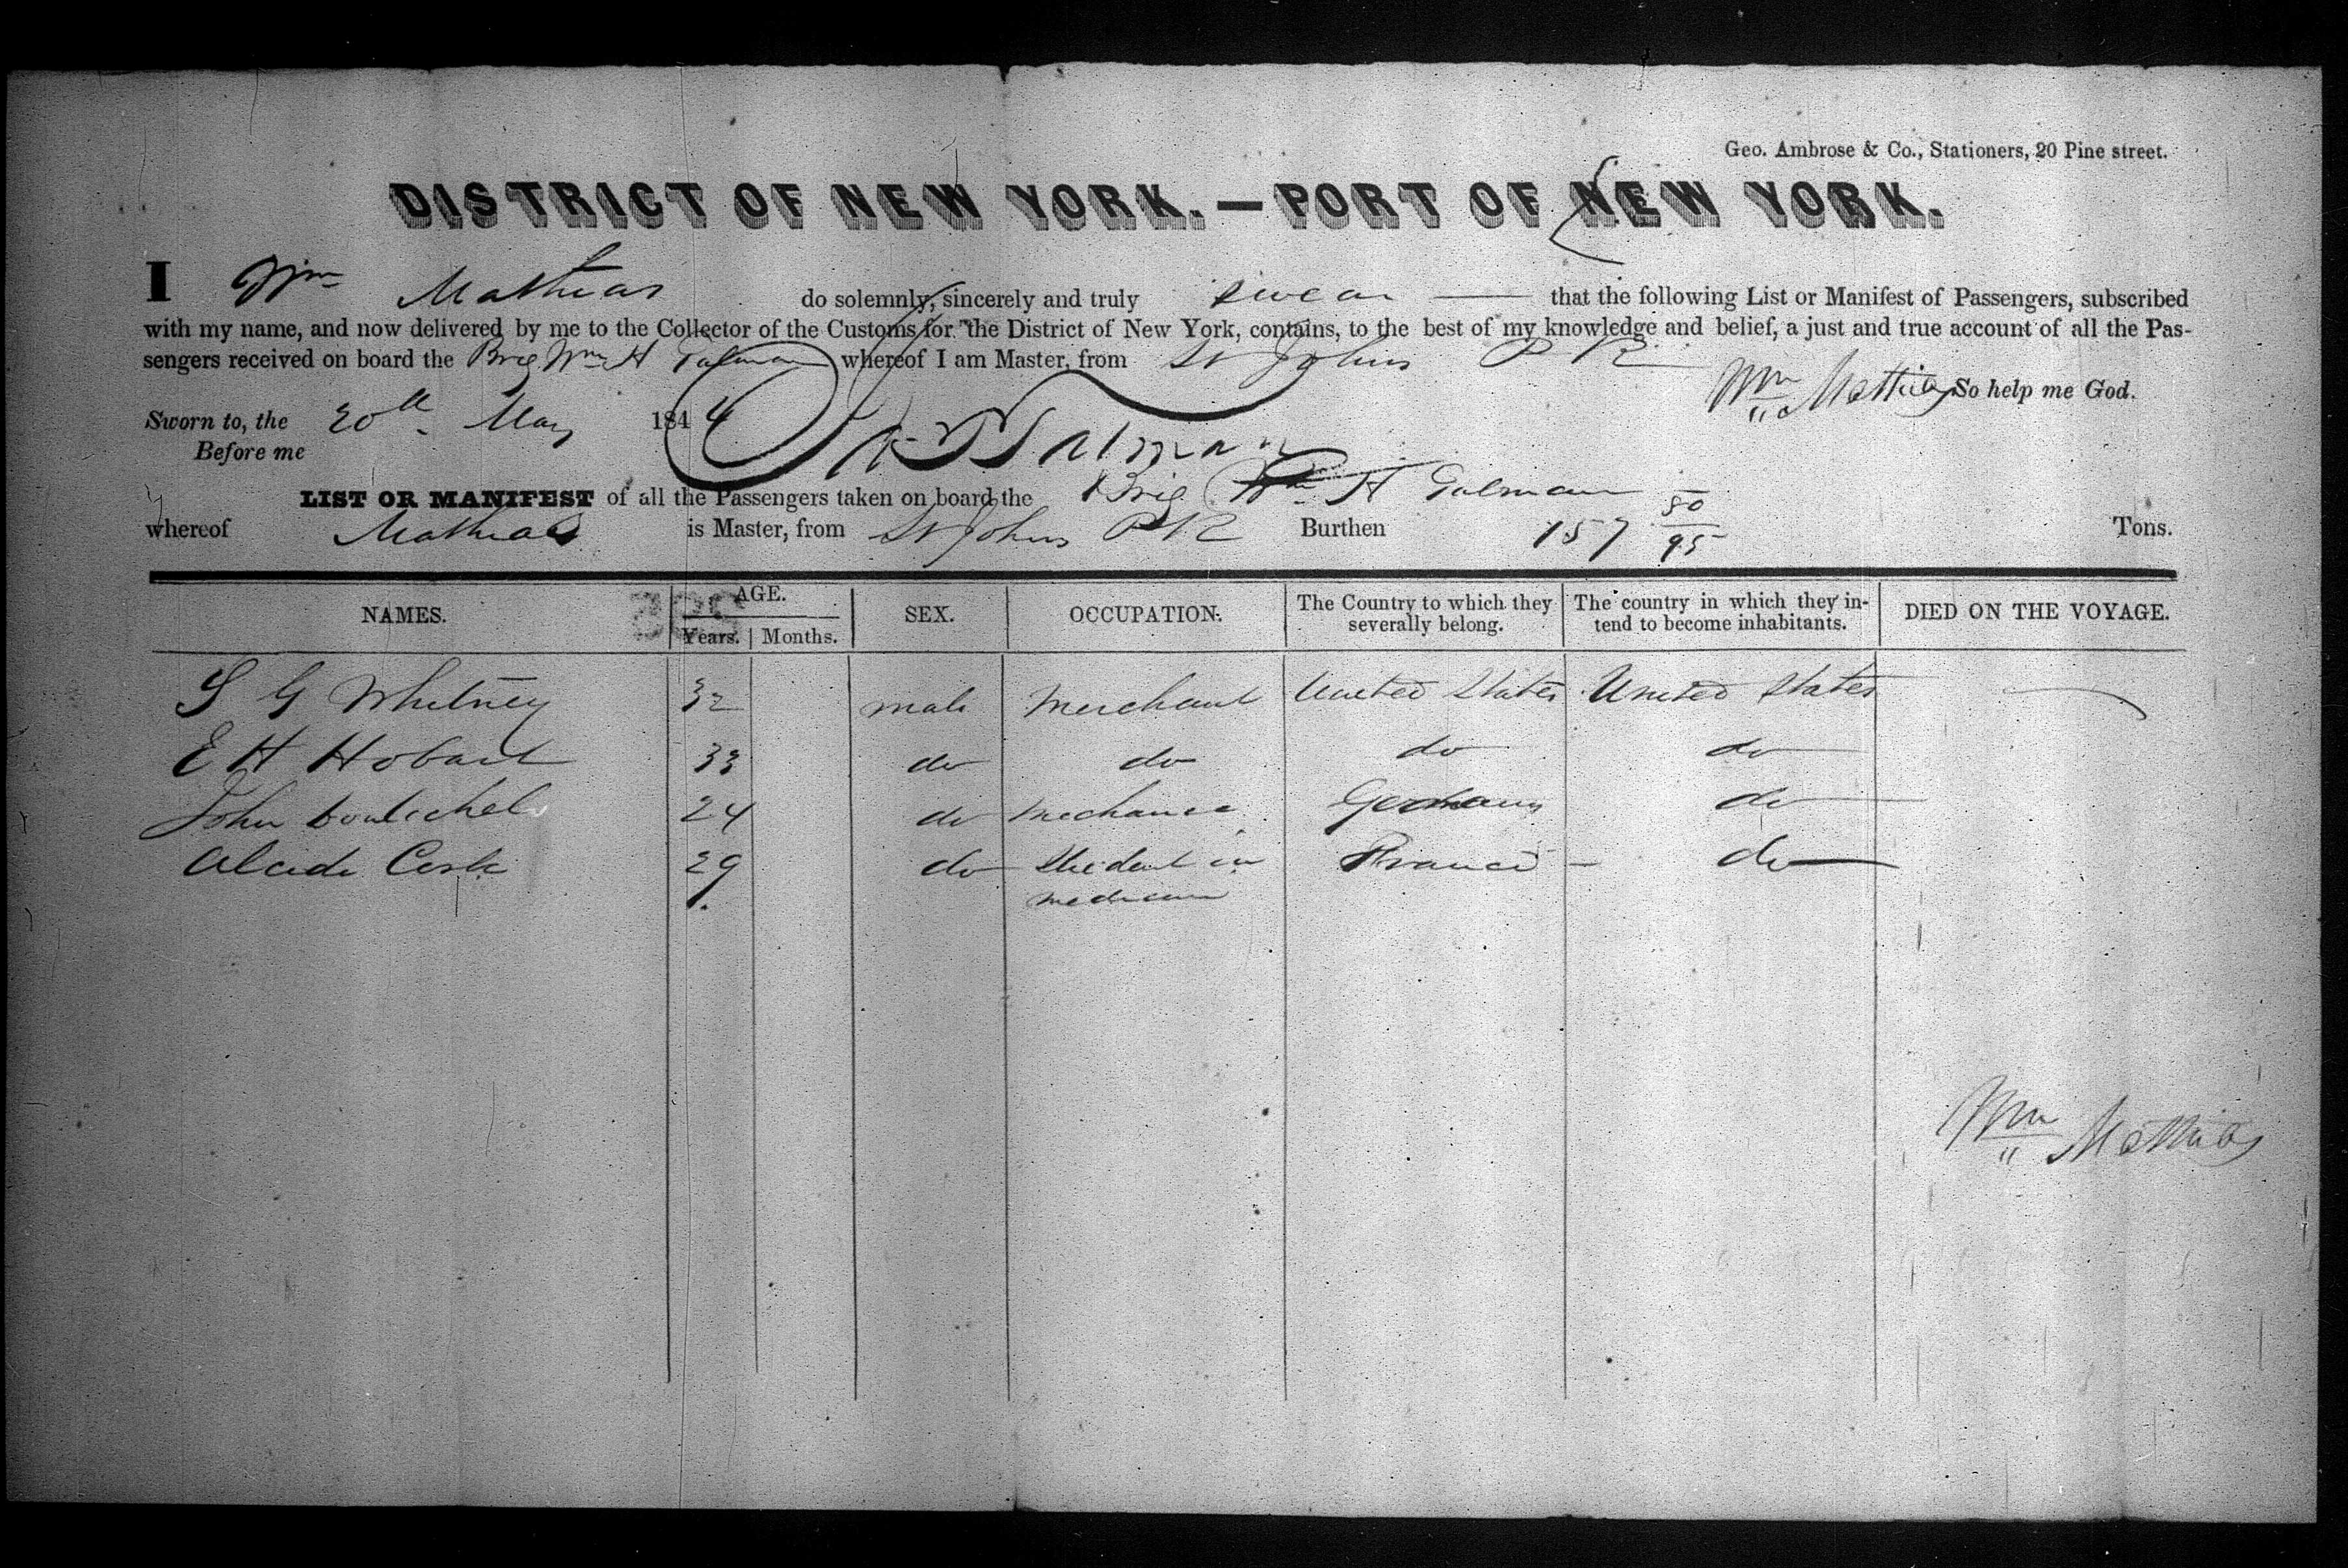 Geo. Ambrose & Co., Stationers, 20 Pine street.
DISTRICT OF NEW YORK.—PORT OF NEW YORK.
I Wm Mathias do solemnly, sincerely and truly swear — that the following List or Manifest of Passengers, subscribed
with my name, and now delivered by me to the Collector of the Customs for the District of New York, contains, to the best of my knowledge and belief, a just and true account of all the Pas-
sengers received on board the Brig Wm H Talman whereof I am Master, from St Johns P R
Wm Mathias So help me God.
Sworn to, the 20th May 1844
Before me
LIST OR MANIFEST of all the Passengers taken on board the Brig Wm H Talman
whereof Mathias is Master, from St Johns P R Burthen 157 50/95 Tons.
NAMES. AGE. SEX. OCCUPATION. The Country to which they severally belong. The country in which they in- tend to become inhabitants. DIED ON THE VOYAGE.
Years. Months.
S G Whitney 32 male Merchant United States United States
E H Hobart 33 do do do do
John 24 do Mechanic Germany do
Alcide 29 do Student in France - do
medicine
Wm Mathias